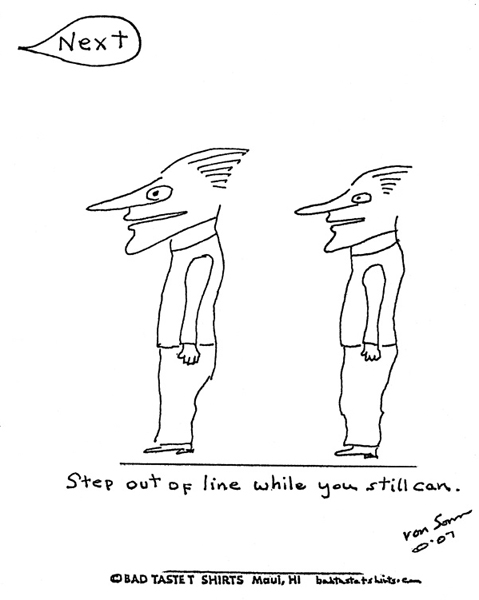 Next
Step out of line while you still can.
von Sonn
0.07
© BAD TASTE T SHIRTS Maui, HI badtastetshirts.com